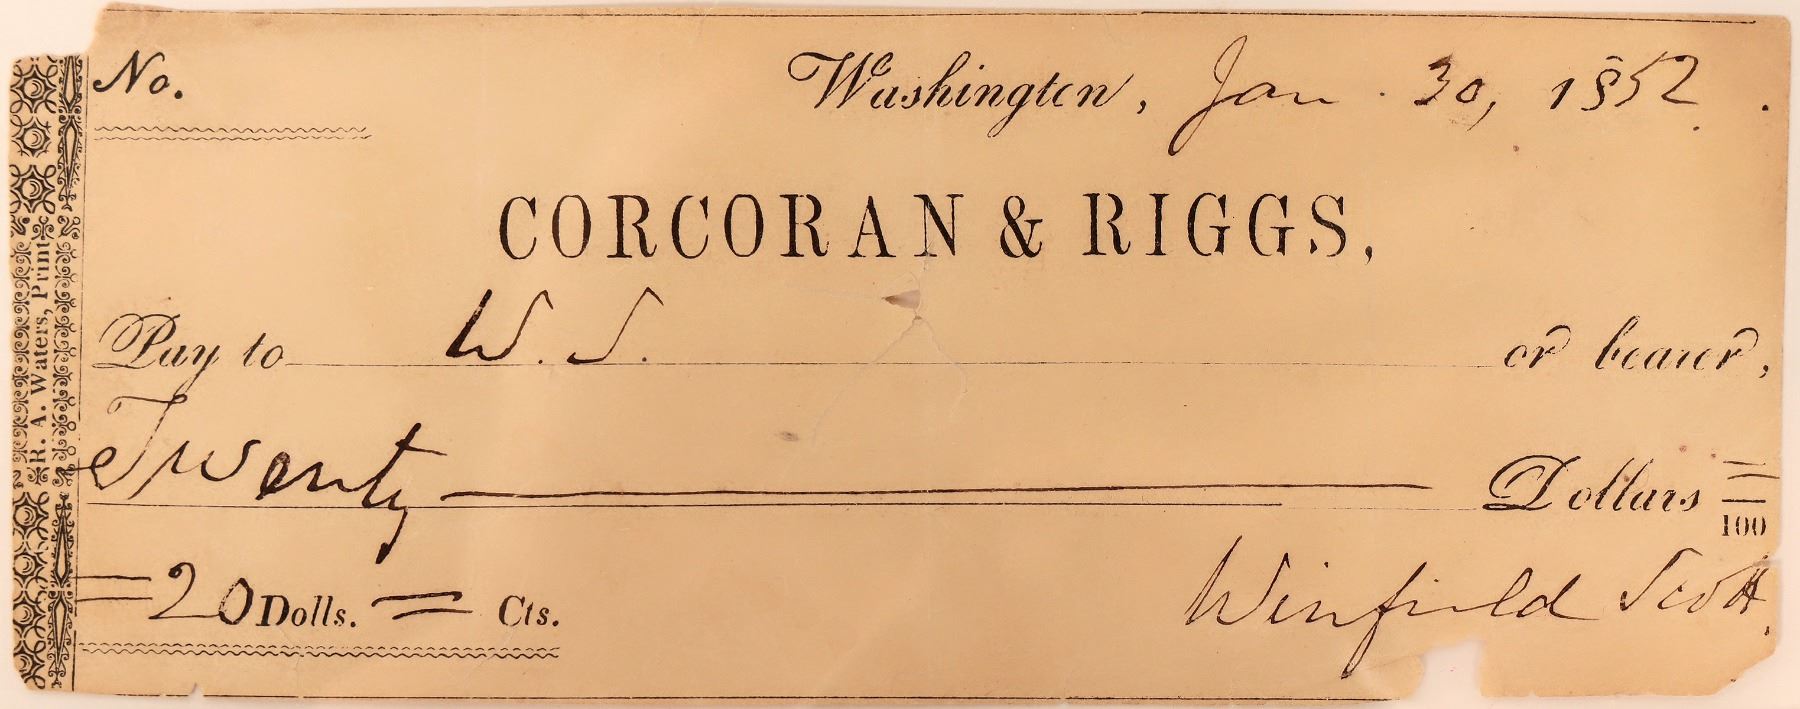 No.
Washington, Jan. 30, 1852.
CORCORAN & RIGGS,
Pay to W. S. or bearer,
Twenty Dollars = /100
=20 Dolls. = Cts.
Winfield Scott.
R. A. Waters, Print